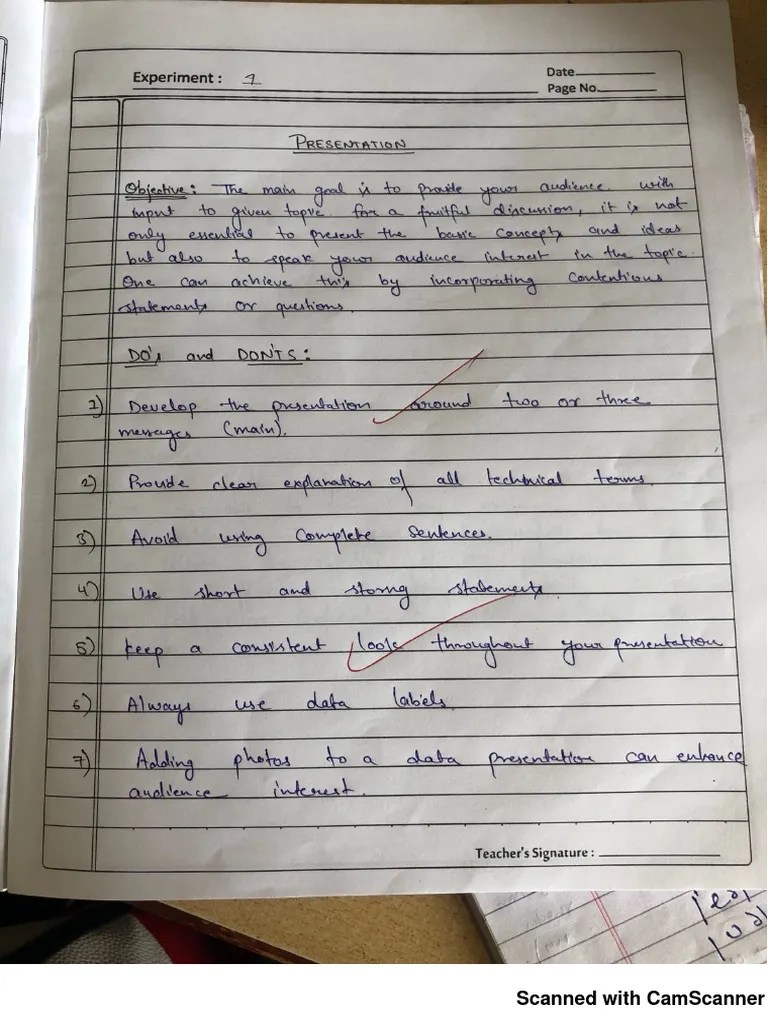 Experiment : 1
Date
Page No.
PRESENTATION
Objective: The main goal is to provide your audience with
input to given topic for a fruitful discussion, it is not
only essential to present the basic concepts and ideas
but also to speak your audience interest in the topic.
One can achieve this by incorporating contentious
statements or questions.
DO's and DON'TS:
1) Develop the presentation around two or three
messages (main).
2) Provide clear explanation of all technical terms.
3) Avoid using complete sentences.
4) Use short and storng statements
5) keep a consistent look throughout your presentation
6) Always use data labels.
7) Adding photos to a data presentation can enhance
audience interest.
Teacher's Signature :
Scanned with CamScanner